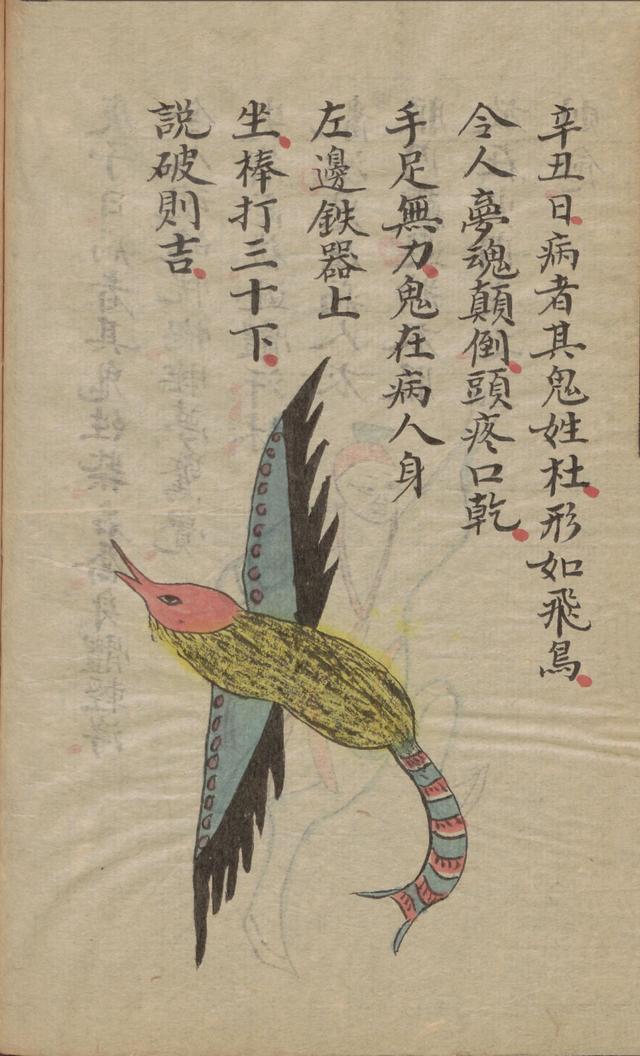 辛丑日病者其鬼姓杜形如飛鳥
令人夢魂顛倒頭疼口乾
手足無力鬼在病人身
左邊鉄器上
坐棒打三十下
説破則吉